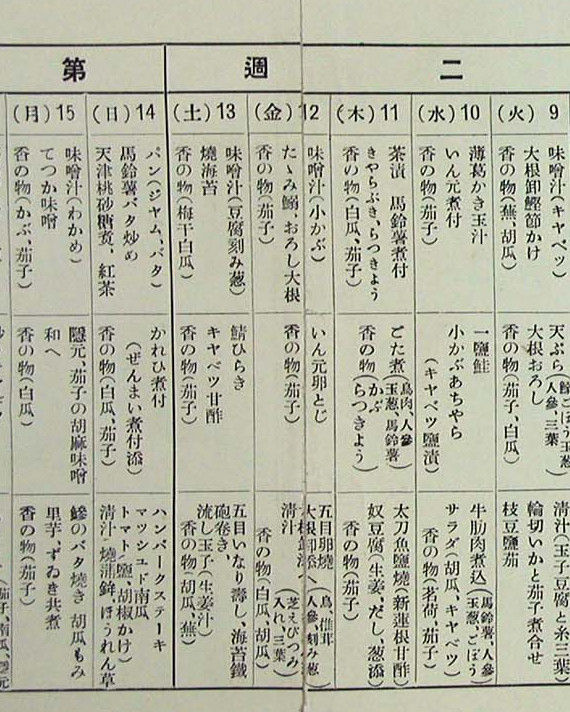 二
週
第
9(火)
味噌汁(キャベツ)
大根卸鰹節かけ
香の物(蕪、胡瓜)
天ぷら
(人參、三葉
大根おろし
香の物(茄子、白瓜)
清汁(玉子豆腐と糸三葉)
輪切いかと茄子煮合せ
枝豆鹽茹
10(水)
薄葛かき玉汁
いん元煮付
香の物(茄子)
一鹽鮭
小かぶあちやら
(キヤベツ鹽漬)
牛肋肉煮込(馬鈴薯、人參
玉葱、ごぼう)
サラダ(胡瓜、キヤベツ)
香の物(茗荷、茄子)
11(木)
茶漬 馬鈴薯煮付
きやらぶき、らつきよう
香の物(白瓜、茄子)
ごた煮(鳥肉、人參
玉葱、馬鈴薯)
香の物(かぶ
らつきよう)
太刀魚鹽燒(新蓮根甘酢)
奴豆腐(生姜、だし、葱添)
香の物(茄子)
12(金)
味噌汁(小かぶ)
たゝみ鰯、おろし大根
香の物(茄子)
いん元卵とじ
香の物(茄子)
五目卵燒
清汁
(芝えびつみ
入れ、三葉)
香の物(白瓜、胡瓜)
13(土)
味噌汁(豆腐刻み葱)
燒海苔
香の物(梅干白瓜)
鯖ひらき
キヤベツ甘酢
香の物(茄子)
五目いなり壽し、海苔鐵
砲卷き)
流し玉子(生姜汁)
香の物(胡瓜、蕪)
14(日)
パン(ジヤム、バタ)
馬鈴薯バタ炒め
天津桃砂糖煑、紅茶
かれひ煮付
(ぜんまい煮付添)
香の物(白瓜、茄子)
ハンバークステーキ
マッシュド南瓜
トマト(鹽、胡椒かけ)
清汁(燒蒲鉾、ほうれん草
15(月)
味噌汁(わかめ)
てつか味噌
香の物(かぶ、茄子)
隱元、茄子の胡麻味噌
和へ
香の物(白瓜)
鰺のバタ燒き 胡瓜もみ
里芋、ずゐき共煮
香の物(茄子)